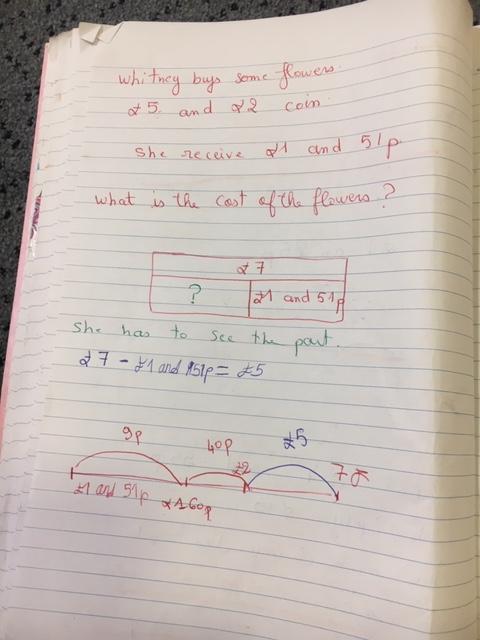 Whitney buys some flowers.
£5. and £2 coin.
She receive £1 and 51p.
What is the cost of the flowers?
£7
?
£1 and 51p
She has to see the part.
£7 - £1 and 151p = £5
9p
40p
£5
£2
7£
£1 and 51p
£1 60p